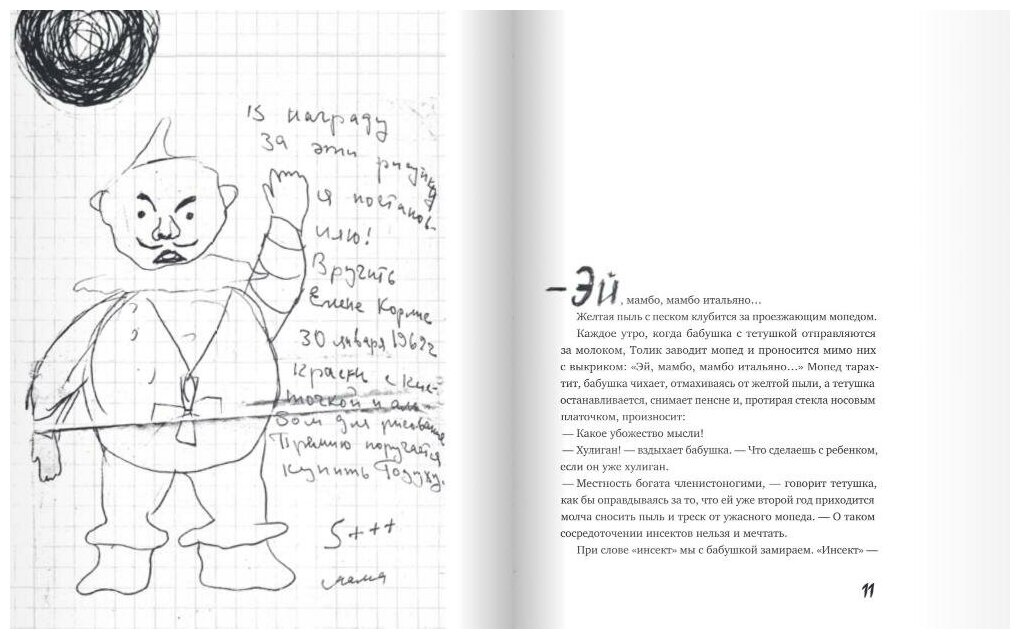 В награду
за эти рисунки
я постанов-
ляю!
Вручить
Елене Корине
30 января 1962 г
краски с кис-
точкой и аль-
бом для рисования
Премию поручается
купить
5+++
мама
–Эй, мамбо, мамбо итальяно...
Желтая пыль с песком клубится за проезжающим мопедом.
Каждое утро, когда бабушка с тетушкой отправляются
за молоком, Толик заводит мопед и проносится мимо них
с выкриком: «Эй, мамбо, мамбо итальяно...» Мопед тарах-
тит, бабушка чихает, отмахиваясь от желтой пыли, а тетушка
останавливается, снимает пенсне и, протирая стекла носовым
платочком, произносит:
— Какое убожество мысли!
— Хулиган! — вздыхает бабушка. — Что сделаешь с ребенком,
если он уже хулиган.
— Местность богата членистоногими, — говорит тетушка,
как бы оправдываясь за то, что ей уже второй год приходится
молча сносить пыль и треск от ужасного мопеда. — О таком
сосредоточении инсектов нельзя и мечтать.
При слове «инсект» мы с бабушкой замираем. «Инсект» —
11